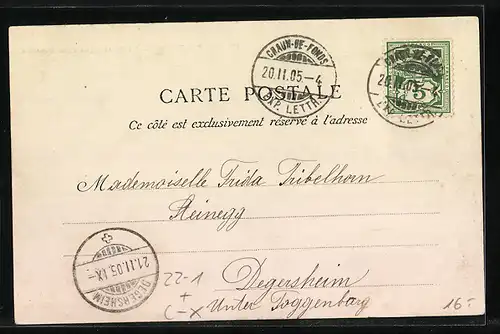 CHAUX-DE-FONDS
20.II.05.-4
EXP. LETTR.
CHAUX-DE-FONDS
20.II.05
EXP. LETTR.
5
CARTE POSTALE
Ce côté est exclusivement réservé à l'adresse
Mademoiselle Frida Tribelhorn
Steinegg
Degersheim
Unter Toggenburg
DEGERSHEIM
21.II.05.IX-
22-1
+
C-X
16.-